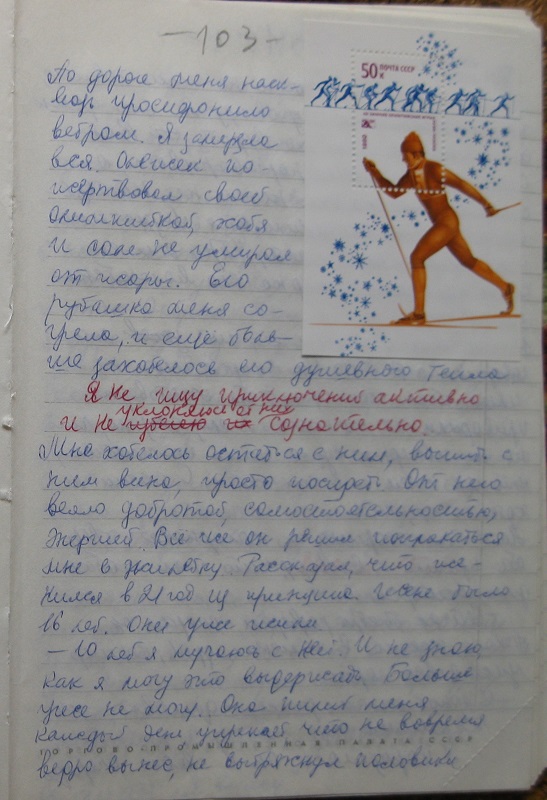 -103-
50к ПОЧТА СССР
1980
По дороге меня наск-
возь просифонило
ветром. Я замерзла
вся. Олейсек по-
жертвовал своей
олимпийкой, хотя
и сам не умирал
от жары. Его
рубашка меня со-
грела, и ещё боль-
ше захотелось его душевного тепла
Я не ищу приключений активно
уклоняюсь от них
и не избегаю их сознательно
Мне хотелось остаться с ним, выпить с
ним вина, просто посидеть. От него
веяло добротой, самостоятельностью,
энергией. Всё же он решил поплакаться
мне в жилетку. Рассказал, что же-
нился в 21 год из принципа. Жене было
16 лет. Они уже жили
– 10 лет я мучаюсь с ней. И не знаю,
как я могу это выдержать. Больше
уже не могу. Она пилит меня,
каждый день упрекает что не вовремя
ТОРГОВО-ПРОМЫШЛЕННАЯ ПАЛАТА СССР
ведро вынес, не вытряхнул половики